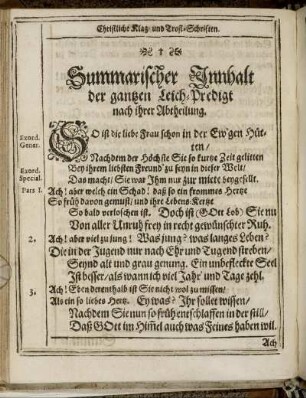 Christliche Klag- und Trost-Schriften.
Summarischer Innhalt
der gantzen Leich-Predigt
nach ihrer Abtheilung.
Exord.
Gener.
SO ist die liebe Frau schon in der Ew'gen Hüt-
ten/
Nachdem der Höchste Sie so kurtze Zeit gelitten
Exord.
Special.
Bey ihrem liebsten Freund' zu seyn in dieser Welt/
Das macht/ Sie war Ihm nur zur miete hergestellt.
Pars I.
Ach! aber welch ein Schad! daß so ein frommes Hertze
So früh davon gemust/ und ihre Lebens-Kertze
So bald verloschen ist. Doch ist (GOtt Lob) Sie nu
Von aller Unruh frey in recht gewünschter Ruh.
2.
Ach! aber viel zu jung! Was jung? was langes Leben?
Die in der Jugend nur nach Ehr und Tugend streben/
Seynd alt und grau genung. Ein unbefleckte Seel
Ist besser/ als wann ich viel Jahr und Tage zehl.
3.
Ach! Eben derenthalb ist Sie nicht wol zu missen/
Als ein so liebes Hertz. Ey was? Ihr sollet wissen/
Nachdem Sie nun so früh entschlaffen in der still/
Daß GOtt im Him̃el auch was Feines haben will.
Ach